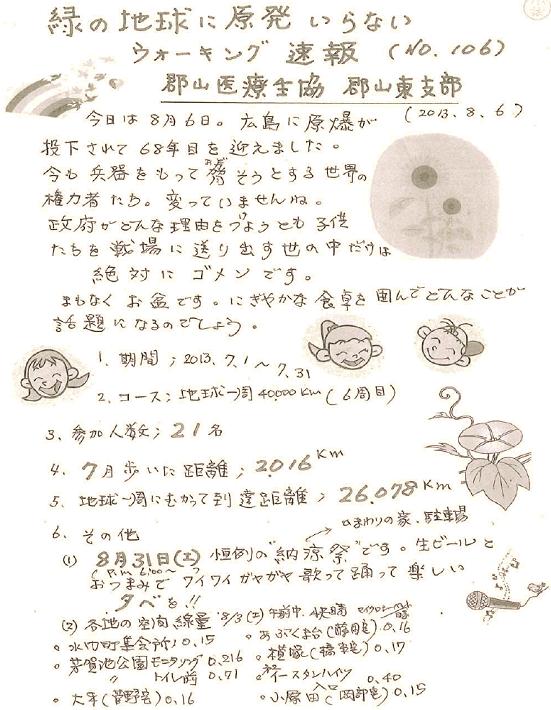 緑の地球に原発いらない
ウォーキング 速報 (NO. 106)
郡山医療生協 郡山東支部
(2013. 8. 6)
今日は8月6日。広島に原爆が
投下されて68年目を迎えました。
今も兵器をもって脅そうとする世界の
権力者たち。変っていませんね。
政府がどんな理由をつけようとも子供
たちを戦場に送り出す世の中だけは
絶対にゴメンです。
まもなくお盆です。にぎやかな食卓を囲んでどんなことが
話題になるのでしょう。
1. 期間; 2013.7.1〜7.31
2. コース; 地球一周 40,000Km (6周目)
3. 参加人数; 21名
4. 7月歩いた距離; 2,016Km
5. 地球一周にむかって到達距離; 26,078Km
6. その他
→ひまわりの家、駐車場
(1) 8月31日(土) 恒例の"納涼祭"です。生ビールと
(P.M. 6:00〜)
おつまみで ワイワイガヤガヤ 歌って踊って 楽しい
夕べを!!
(2) 各地の空間線量 8/3(土) 午前中、快晴 マイクロシーベルト
。水竹町集会所 0.15 。あぶくま台() 0.16
。芳賀池公園モニタリング 0.216 。横塚(橋本宅) 0.17
〃 トイレ前 0.71 。イースタンハイツ 0.40
。大平(菅野宅) 0.16 。小原田入口(岡部宅) 0.15